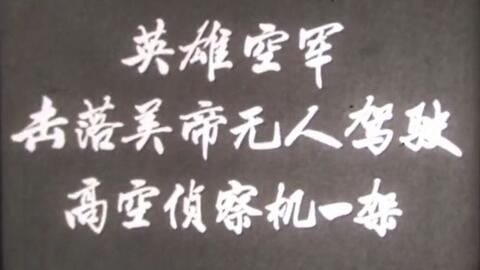 英雄空军
击落美帝无人驾驶
高空侦察机一架